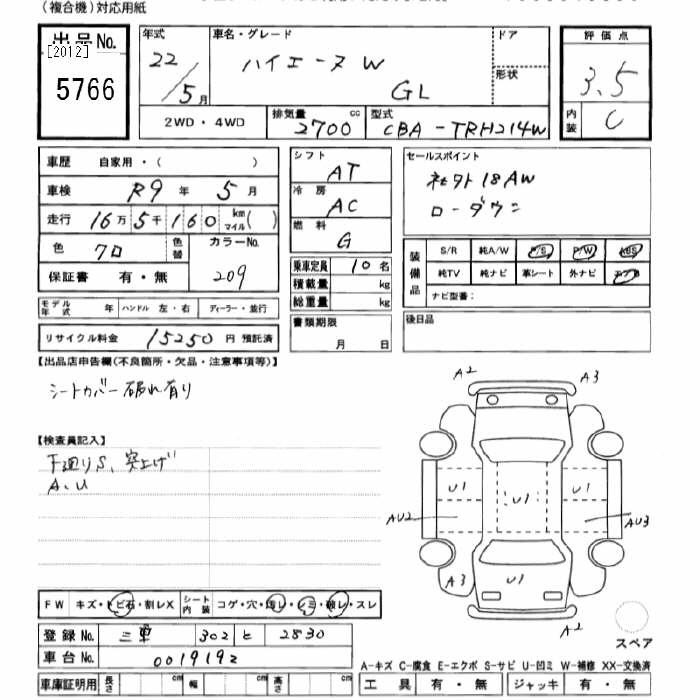 (複合機)対応用紙
出品No.
[2012]
5766
年式
22/5月
車名・グレード
ハイエースW
GL
ドア
形状
評価点
3.5
内装
C
2WD・4WD
排気量
2700cc
型式
CBA-TRH214W
車歴 自家用・( )
車検 R9年5月
走行 16万5千160km マイル( )
色 クロ
色替
カラーNo.
209
保証書 有・無
シフト
AT
冷房
AC
燃料
G
乗車定員 10名
積載量 kg
総重量 kg
セールスポイント
社外18AW
ローダウン
装備品
S/R 純A/W P/S P/W ABS
純TV 純ナビ 革シート 外ナビ エアB
ナビ型番:
モデル年式 年 ハンドル 左・右 ディーラー・並行
リサイクル料金 15250円 預託済
書類期限
月 日
後日品
【出品店申告欄(不良箇所・欠品・注意事項等)】
シートカバー破れ有り
【検査員記入】
下廻りS、突上げ
A、U
A2
A3
U1
U1
U1
AU2
AU3
A3
U1
A2
スペア
FW キズ・トビ石・割レX シート内装 コゲ・穴・汚レ・シミ・破レ・スレ
登録No. 三重 302 と 2830
車台No. 0019192
A-キズ C-腐食 E-エクボ S-サビ U-凹ミ W-補修 XX-交換済
車庫証明用 長さ cm 幅 cm 高さ cm
工具 有・無 ジャッキ 有・無